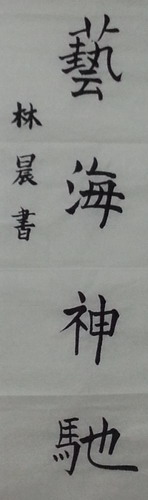 藝海神馳
林晨書